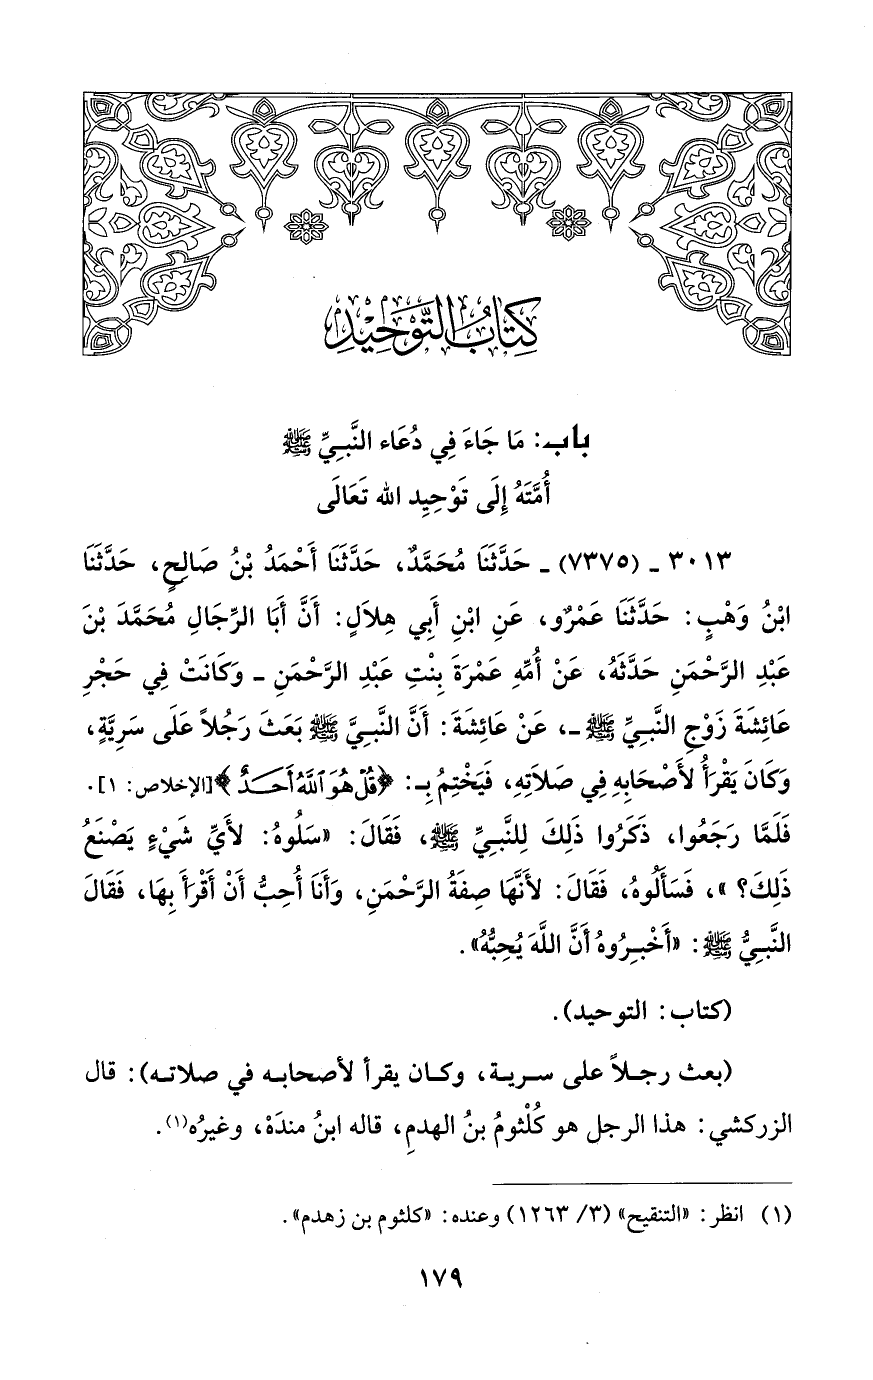 كِتَابُ التَّوْحِيْدِ
باب: مَا جَاءَ فِي دُعَاء النَّبِيِّ ﷺ
أُمَّتَهُ إِلَى تَوْحِيِد الله تَعَالَى
٣٠١٣ ـ (٧٣٧٥) ـ حَدَّثَنَا مُحَمَّدٌ، حَدَّثَنَا أَحْمَدُ بْنُ صَالِحٍ، حَدَّثَنَا
ابْنُ وَهْبٍ: حَدَّثَنَا عَمْرٌو، عَنِ ابْنِ أَبِي هِلَالٍ: أَنَّ أَبَا الرِّجَالِ مُحَمَّدَ بْنَ
عَبْدِ الرَّحْمَنِ حَدَّثَهُ، عَنْ أُمِّهِ عَمْرَةَ بِنْتِ عَبْدِ الرَّحْمَنِ ـ وَكَانَتْ فِي حَجْرِ
عَائِشَةَ زَوْجِ النَّبِيِّ ﷺ ـ، عَنْ عَائِشَةَ: أَنَّ النَّبِيَّ ﷺ بَعَثَ رَجُلاً عَلَى سَرِيَّةٍ،
وَكَانَ يَقْرَأُ لأَصْحَابِهِ فِي صَلَاتِهِ، فَيَخْتِمُ بِـ: ﴿قُلْ هُوَ ٱللَّهُ أَحَدٌ﴾ [الإخلاص: ١].
فَلَمَّا رَجَعُوا، ذَكَرُوا ذَلِكَ لِلنَّبِيِّ ﷺ، فَقَالَ: «سَلُوهُ: لأَيِّ شَيْءٍ يَصْنَعُ
ذَلِكَ؟»، فَسَأَلُوهُ، فَقَالَ: لأَنَّهَا صِفَةُ الرَّحْمَنِ، وَأَنَا أُحِبُّ أَنْ أَقْرَأَ بِهَا، فَقَالَ
النَّبِيُّ ﷺ: «أَخْبِرُوهُ أَنَّ اللَّهَ يُحِبُّهُ».
(كتاب: التوحيد).
(بعث رجلاً على سرية، وكان يقرأ لأصحابه في صلاته): قال
الزركشي: هذا الرجل هو كُلْثومُ بنُ الهدمِ، قاله ابنُ مندَهْ، وغيرُه(١).
(١) انظر: «التنقيح» (٣/ ١٢٦٣) وعنده: «كلثوم بن زهدم».
١٧٩